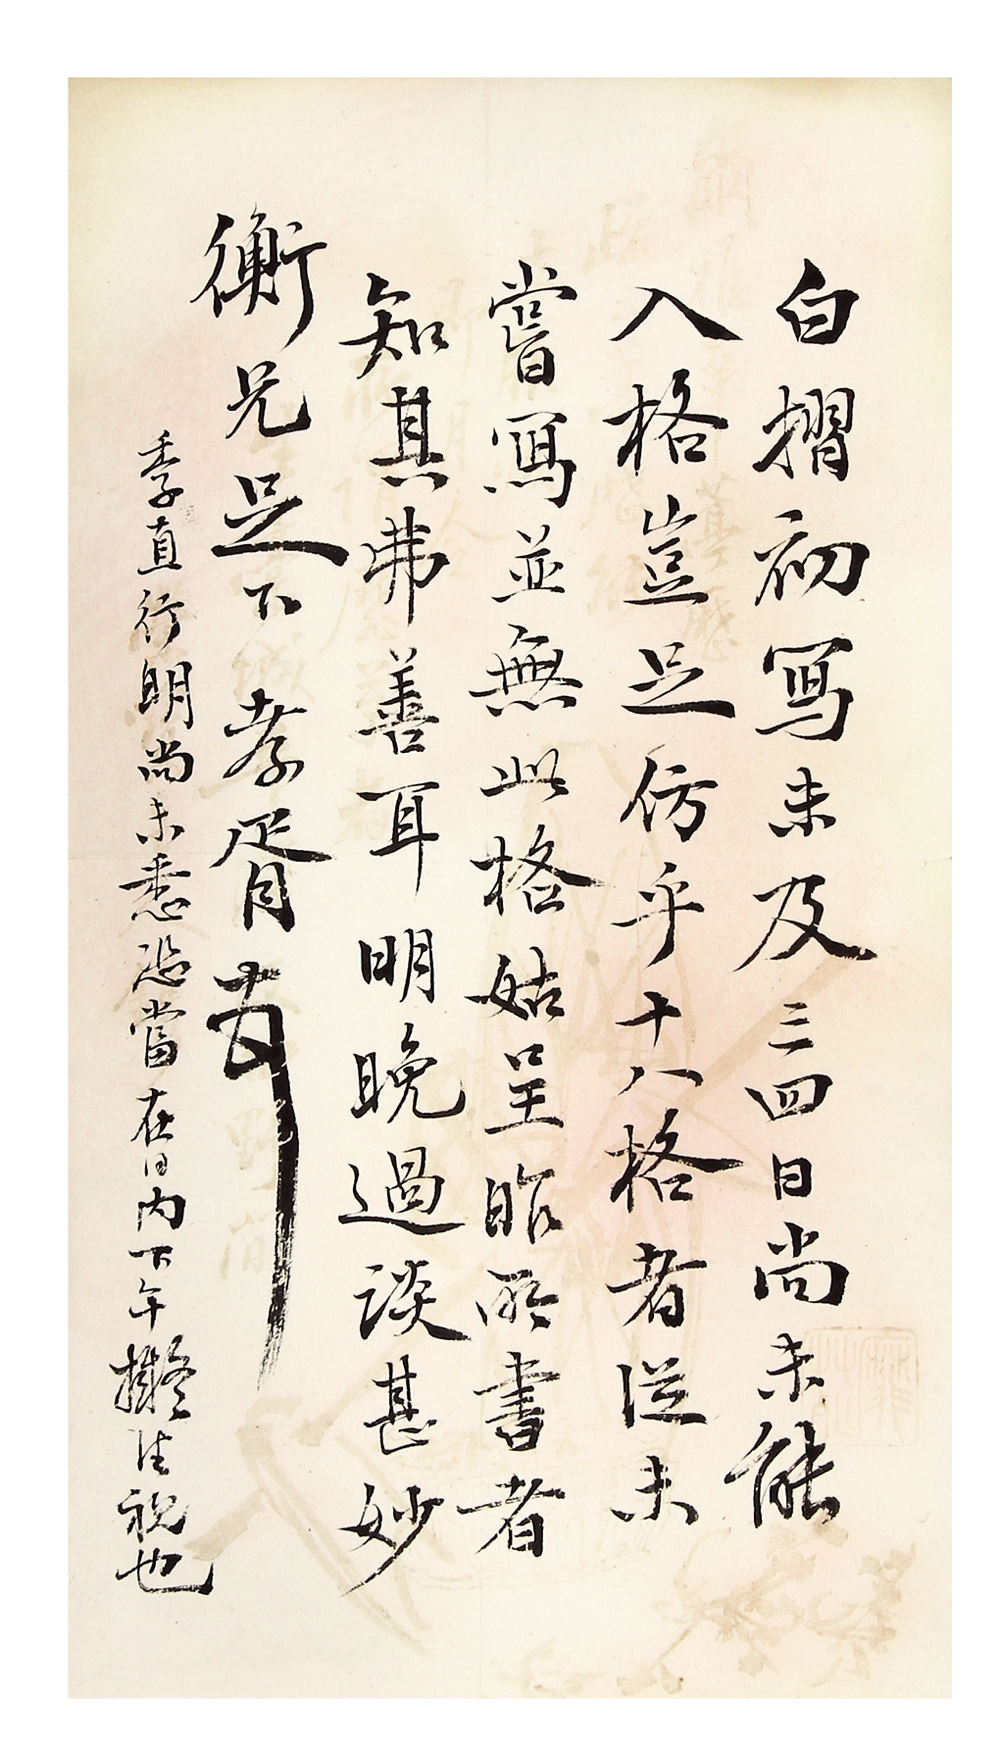 白摺初寫未及三四日尚未能
入格豈足仿乎十八格者從未
嘗寫並無此格姑呈昨所書者
知其弗善耳明晚過談甚妙
衡兄足下 孝胥
季直行期尚未悉恐當在日內下午擬往視也